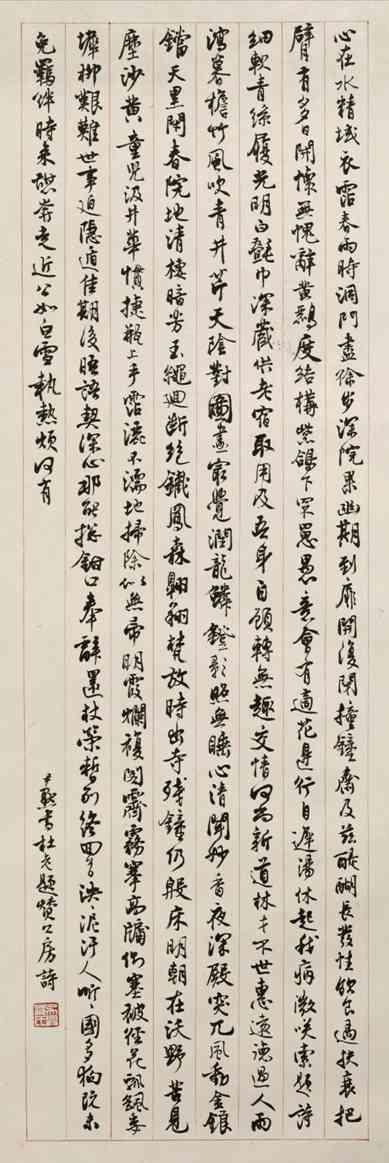 心在水精域衣霑春雨時洞門盡徐步深院果幽期到扉開復閉撞鐘齋及茲醍醐長發性飲食過扶衰把
臂有多日開懷無愧辭黃鸝度結構紫鴿下罘罳愚意會有適花邊行自遲湯休起我病微笑索題詩
細軟青絲履光明白㲲巾深藏供老宿取用及吾身自顧轉無趣交情何尚新道林才不世惠遠德過人雨
瀉暮檐竹風吹青井芹天陰對圖畫最覺潤龍鱗鐙影照無睡心清聞妙香夜深殿突兀風動金鋃
鐺天黑閉春院地清棲暗芳玉繩迴斷絕鐵鳳森翱翔梵放時出寺殘鐘仍殷床明朝在沃野苦見
塵沙黃童兒汲井華慣捷瓶上手霑灑不濡地掃除似無帚明霞爛複閣霽霧搴高牖側塞被徑花飄颻委
墀柳艱難世事迫隱遁佳期後晤語契深心那能總鉗口奉辭還杖策暫別終回首泱泱泥汙人狺狺國多狗既未
免羈絆時來憩奔走近公如白雪執熱煩何有
尹默書杜老題贊公房詩